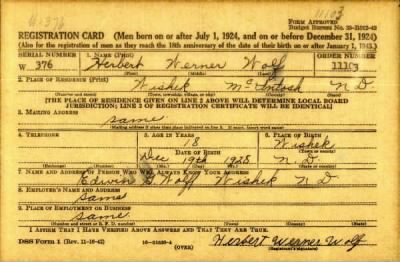 FORM APPROVED
REGISTRATION CARD (Men born on or after July 1, 1924, and on or before December 31, 1924)
(Also for the registration of men as they reach the 18th anniversary of the date of their birth on or after January 1, 1943.)
SERIAL NUMBER 1. NAME (Print) ORDER NUMBER
W 376 Herbert Werner Wolf 11103
2. PLACE OF RESIDENCE (Print)
Wishek McIntosh N D
[THE PLACE OF RESIDENCE GIVEN ON LINE 2 ABOVE WILL DETERMINE LOCAL BOARD
JURISDICTION; LINE 2 OF REGISTRATION CERTIFICATE WILL BE IDENTICAL]
3. MAILING ADDRESS
same
4. TELEPHONE 5. AGE IN YEARS 6. PLACE OF BIRTH
18 Wishek
DATE OF BIRTH
Dec 19th N D
7. NAME AND ADDRESS OF PERSON WHO WILL ALWAYS KNOW YOUR ADDRESS
Edwin Wolf Wishek N D
8. EMPLOYER'S NAME AND ADDRESS
same
9. PLACE OF EMPLOYMENT OR BUSINESS
same
I AFFIRM THAT I HAVE VERIFIED ABOVE ANSWERS AND THAT THEY ARE TRUE.
DSS Form 1 (OVER) Herbert Werner Wolf
(Registrant's signature)